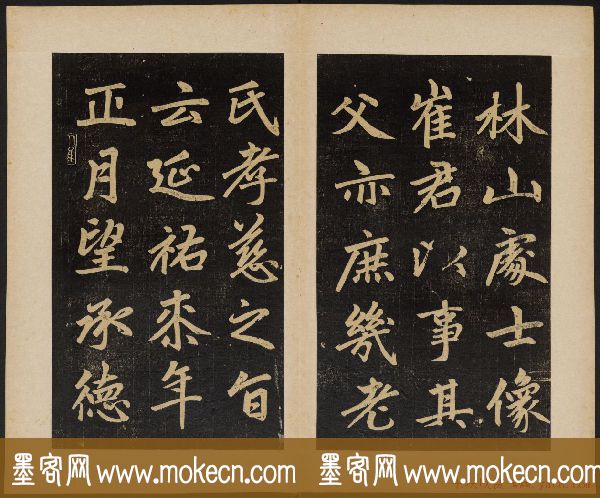 林山處士像
崔君以事其
父亦庶幾老
氏孝慈之旨
云延祐來年
正月望承德
墨客网 www.mokecn.com
墨客网 www.mokecn.com